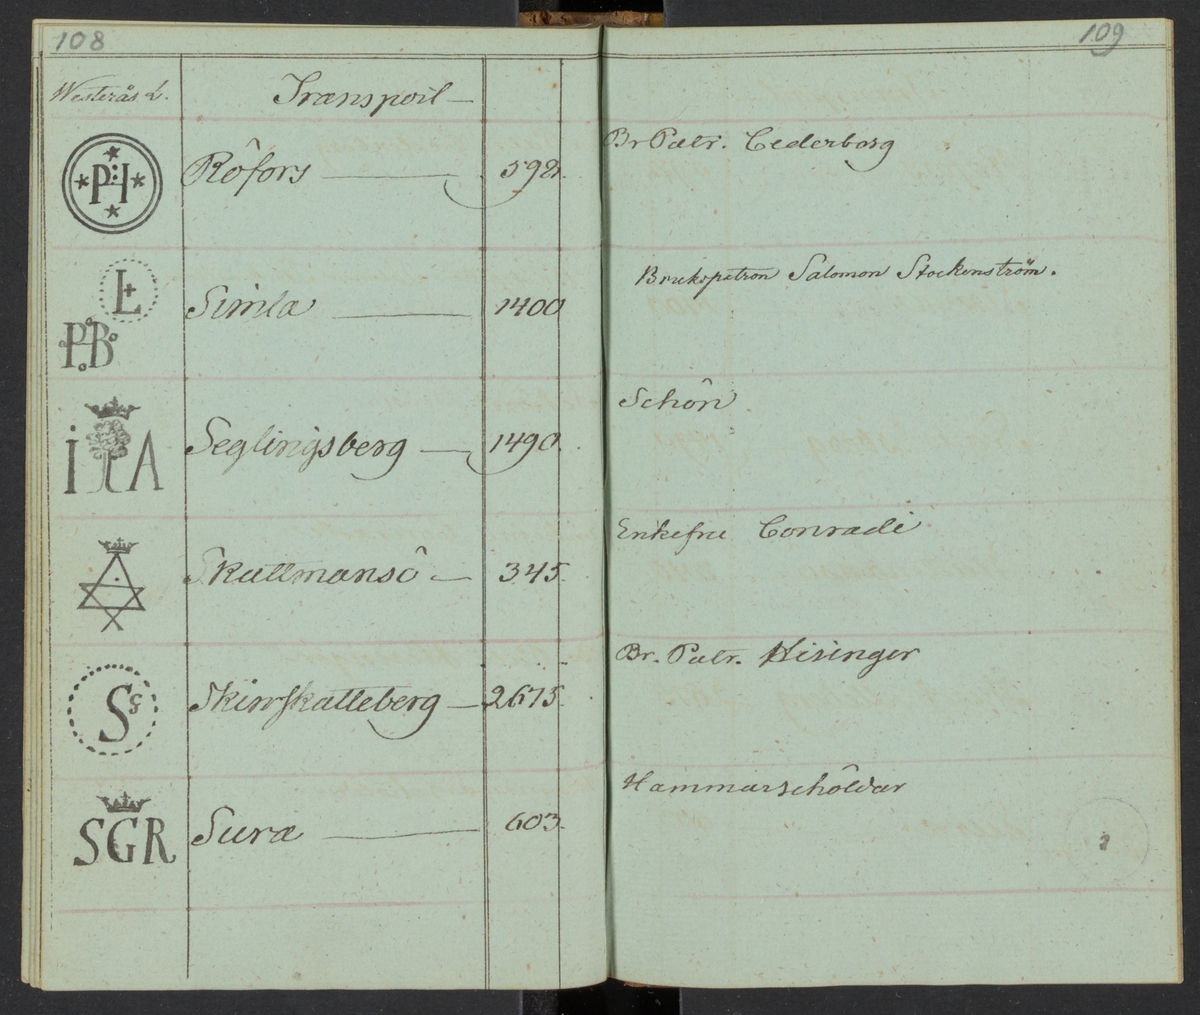 108
109
Westerås L.
Transport
P:H Röfors 598. Br Patr. Cederborg
L
PB Simla 1400 Brukspatron Salomon Stockenström.
I A Seglingsberg 1490. Schön
Skattmansö 345. Enkefru Conradi
S Skinskatteberg 2675. Br. Patr. Hisinger
SGR Sura 603. Hammarschöldar